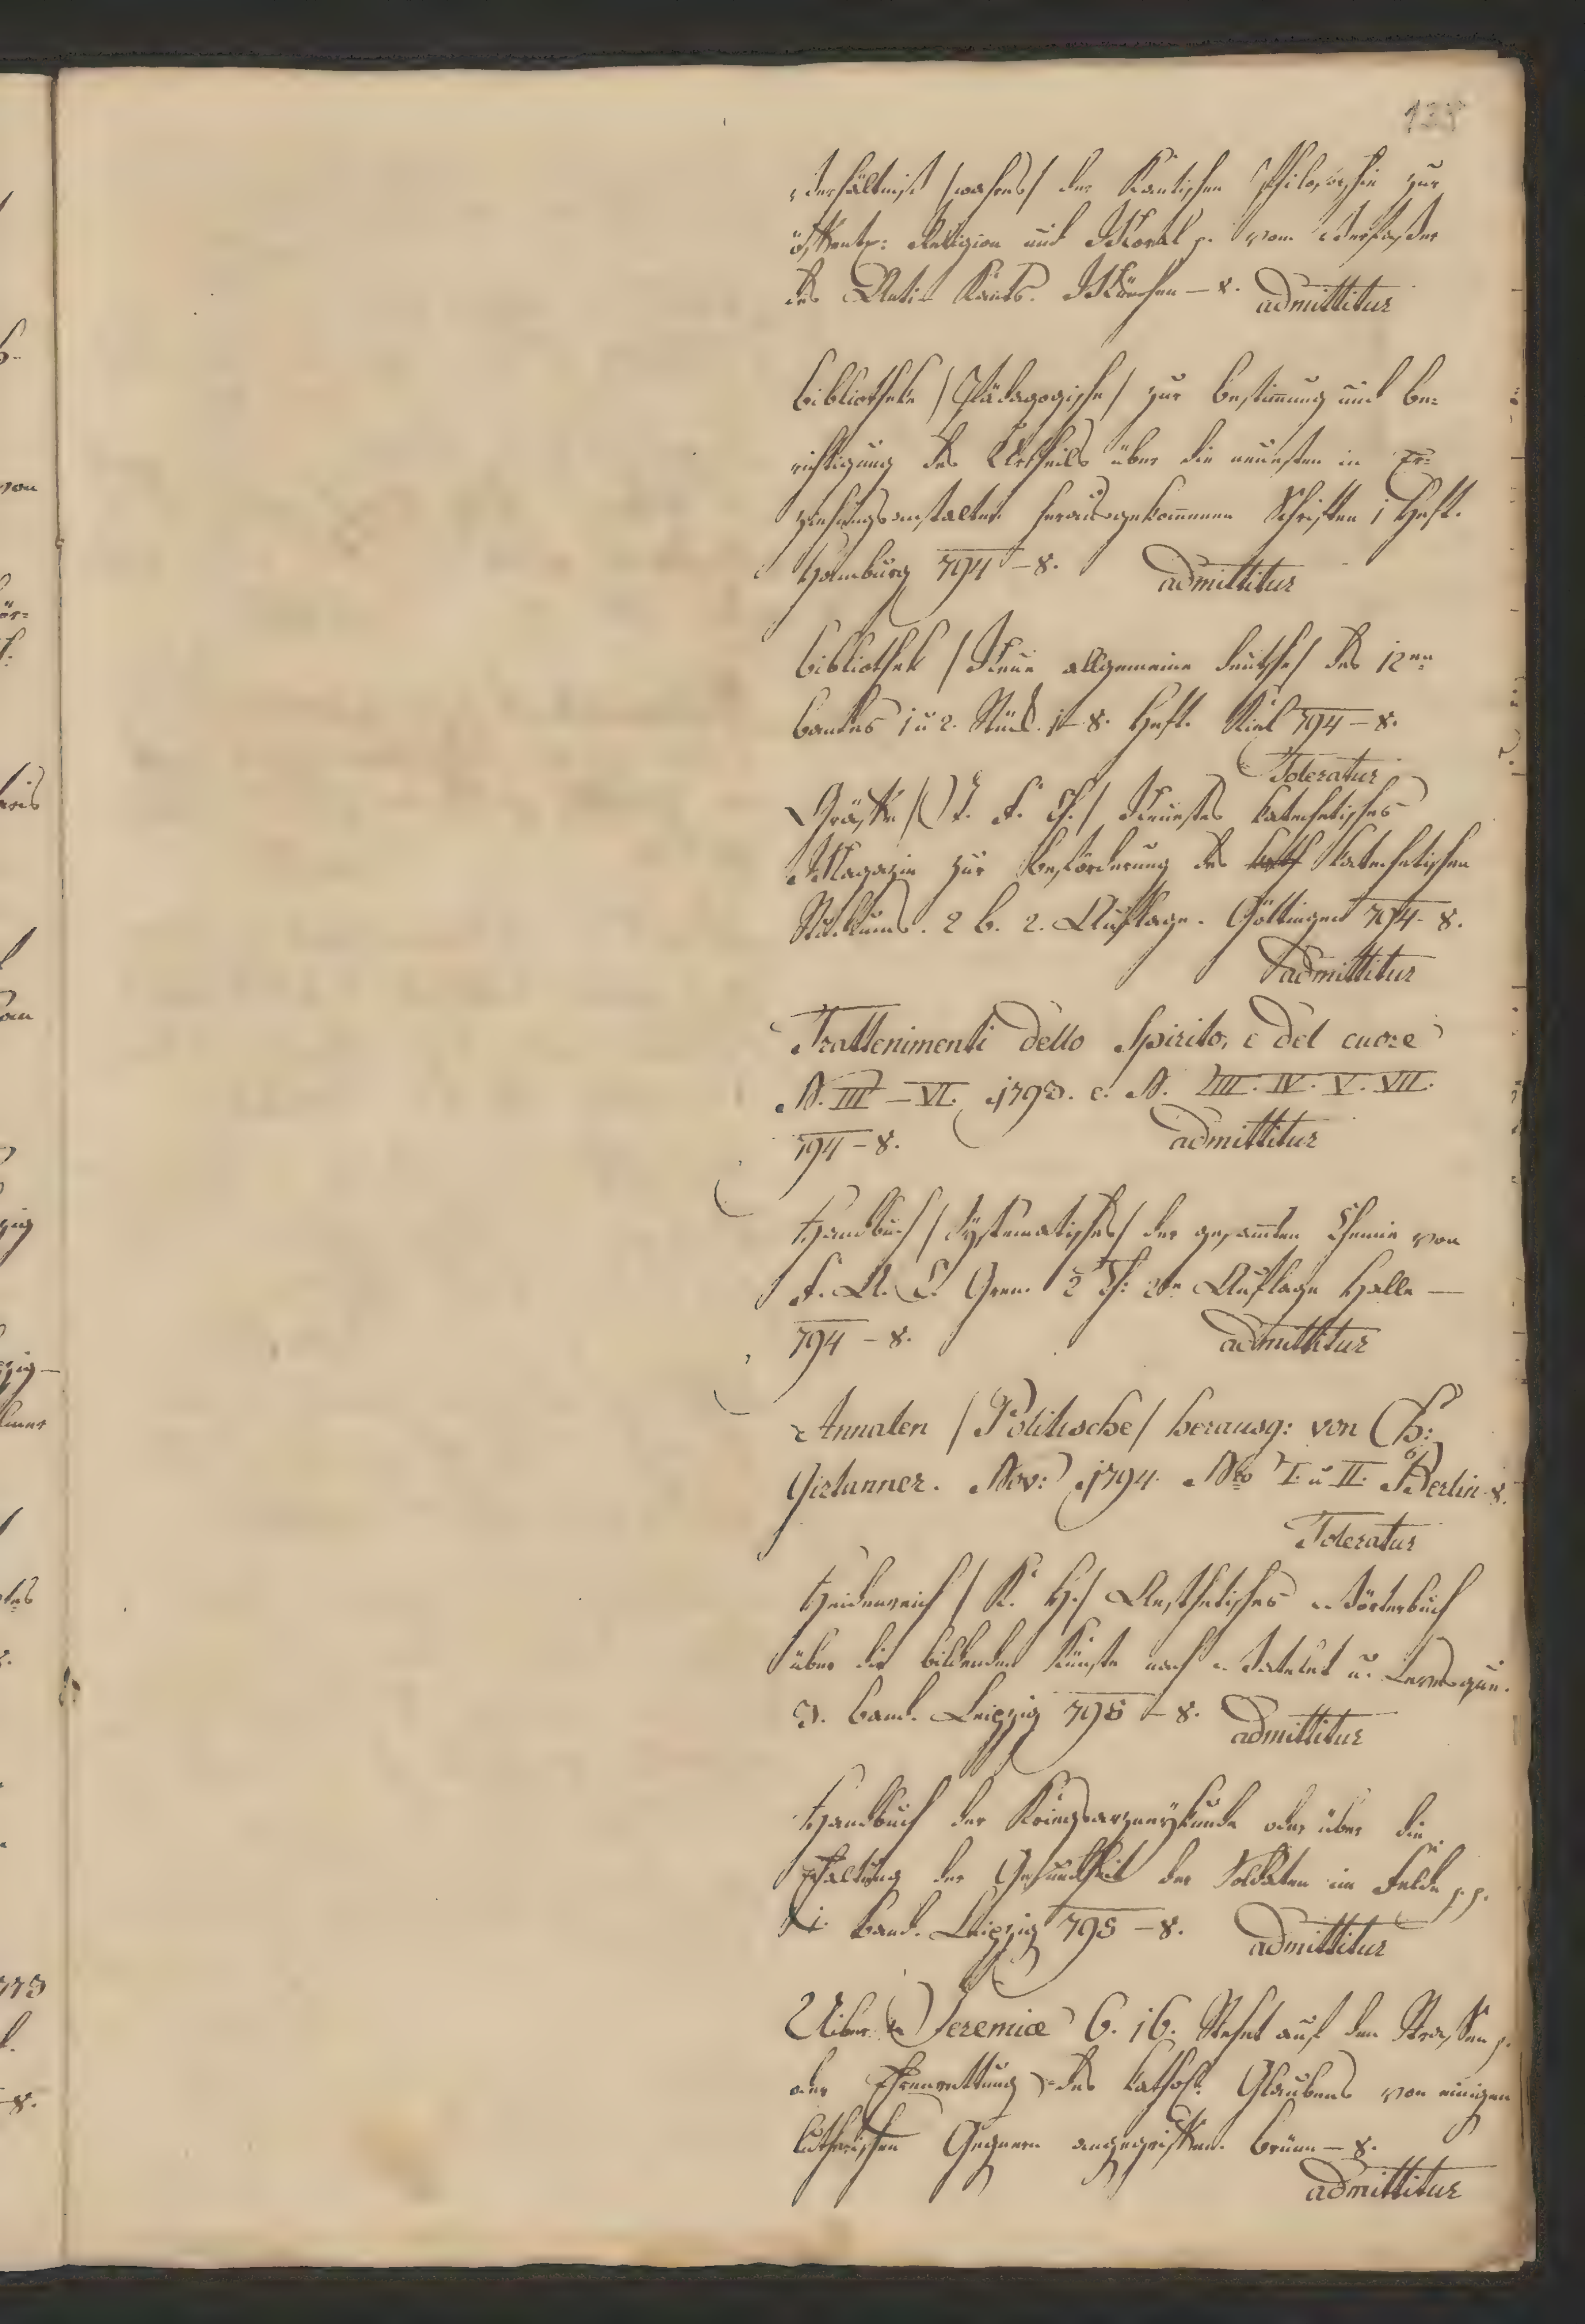 Verhältniß /wahres/ der Kantischen Philosophie zur
öffentl: Religion und Moral p. vom Verfasser
des Anti-Kants. München – 8. admittitur
Bibliothek /Pädagogische/ zur Bestimmung und Be=
richtigung des Urtheils über die neuesten in Er=
ziehungsanstalten herausgekommenen Schriften 1 Heft.
Hamburg 794 – 8. admittitur
Bibliothek /Neue allgemeine deutsche/ des 12en
Bandes 1 u 2. Stück. 1–8. Heft. Kiel 794 – 8.
Toleratur
Gräffe /J. F. Ch./ Neuestes katechetisches
Magazin zur Beförderung des katechetischen
Studiums. 2 B. 2. Auflage. Göttingen 794 – 8.
admittitur
Trattenimenti dello Spirito, e del cuore
N. III – VI. 1793. e. N. III. IV. V. VII.
794 – 8. admittitur
Handbuch /Systematisches/ der gesam̄ten Chemie von
F. A. C. Gren 2 Th: 2te Auflage Halle –
794 – 8. admittitur
Annalen /Politische/ herausg: von Ch:
Girtanner. Nov: 1794. Nro I. u II. Berlin 8.
Toleratur
Heidenreich /K. H./ Aesthetisches Wörterbuch
über die bildenden Künste nach Watelet u. Levesque.
3. Band. Leipzig 795 – 8. admittitur
Handbuch der Kriegsarzneykunde oder über die
Erhaltung der Gesundheit der Soldaten im Felde p. p.
1. Band. Leipzig 795 – 8. admittitur
Uiber Jeremiæ 6. 16. Stehet auf den Strassen p.
oder Ehrenrettung des kathol: Glaubens von einigen
lutherischen Gegnern angegriffen. Brünn – 8.
admittitur